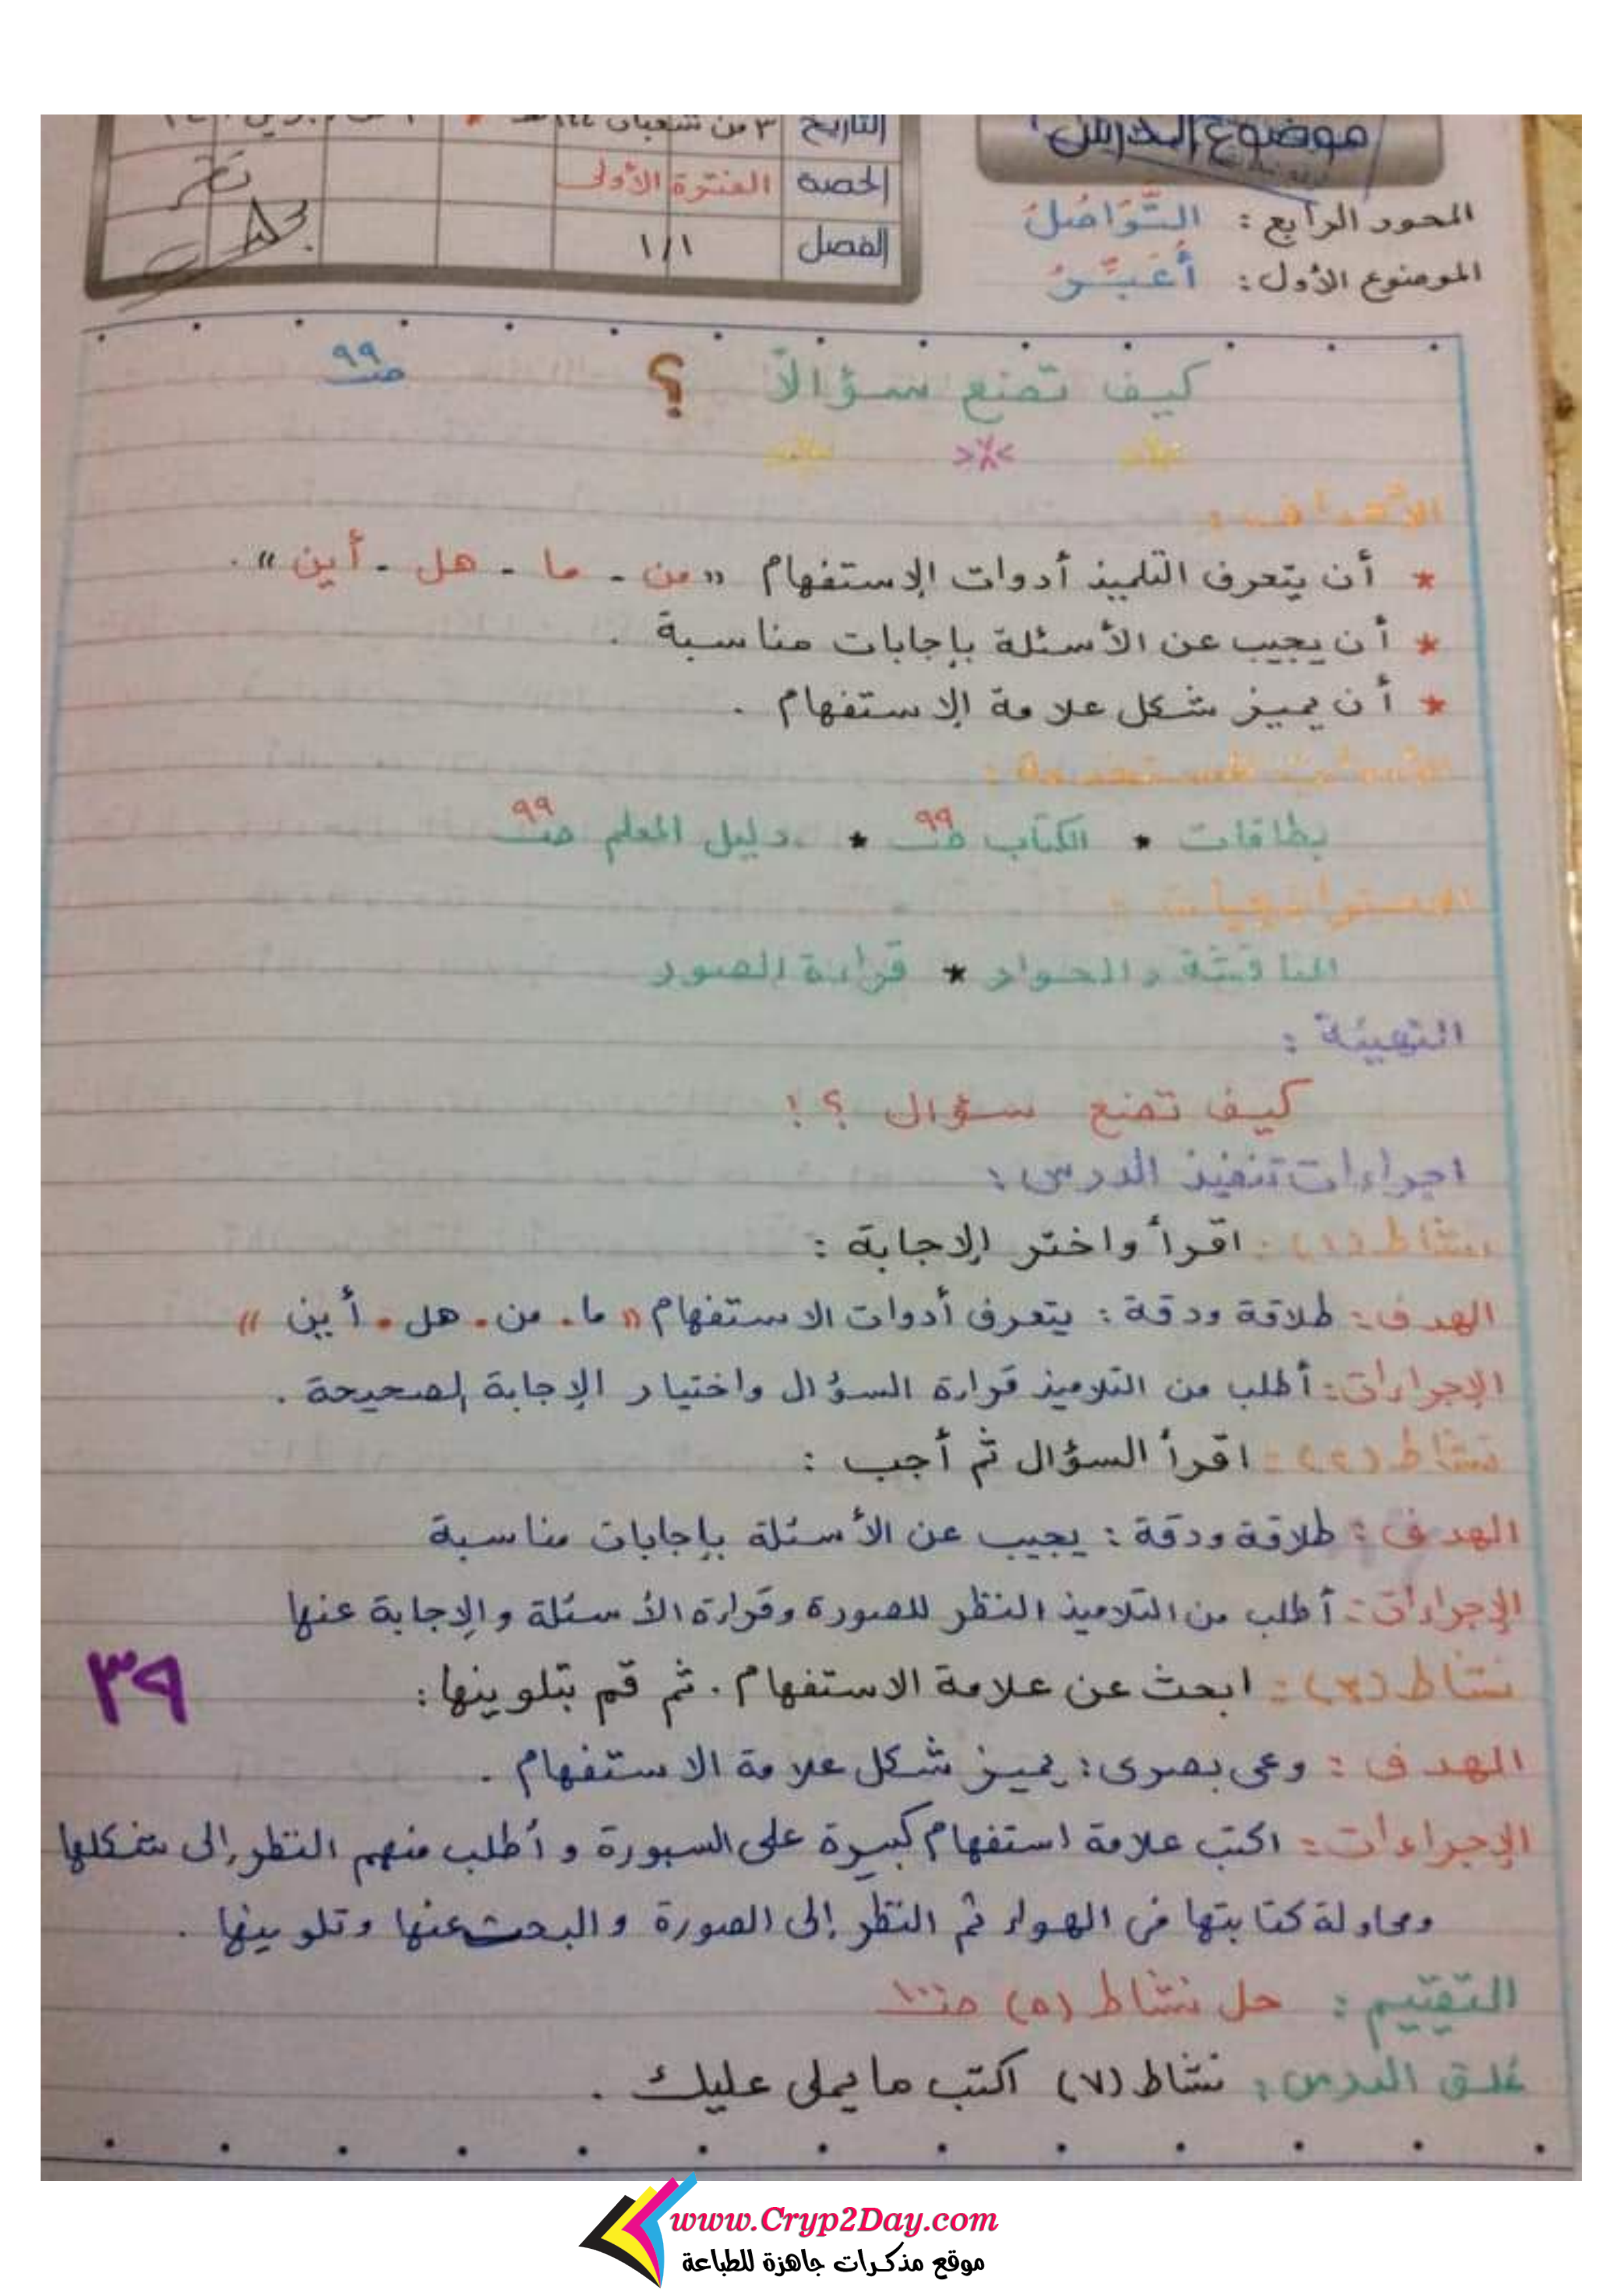 موضوع الدرس
التاريخ ٣ من شعبان
المحور الرابع : التَّوَاصُلُ
الحصة الفترة الأولى
الموضوع الأول : أُعَبِّرُ
الفصل ١/١
كيف تصنع سؤالاً ؟ صـ ٩٩
الأهداف :
* أن يتعرف التلميذ أدوات الإستفهام « من - ما - هل - أين » .
* أن يجيب عن الأسئلة بإجابات مناسبة .
* أن يميز شكل علامة الإستفهام .
بطاقات * الكتاب صـ ٩٩ * دليل المعلم صـ ٩٩
الاستراتيجيات :
المناقشة والحوار * قراءة الصور
التهيئة :
كيف تصنع سؤال ؟!
اجراءات تنفيذ الدرس :
نشاط (١) : اقرأ واختر الإجابة :
الهدف : طلاقة ودقة : يتعرف أدوات الاستفهام « ما . من . هل . أين »
الإجراءات : أطلب من التلاميذ قراءة السؤال واختيار الإجابة الصحيحة .
نشاط (٢) : اقرأ السؤال ثم أجب :
الهدف : طلاقة ودقة : يجيب عن الأسئلة بإجابات مناسبة
الإجراءات : أطلب من التلاميذ النظر للصورة وقراءة الأسئلة والإجابة عنها
نشاط (٣) : ابحث عن علامة الاستفهام . ثم قم بتلوينها :
٣٩
الهدف : وعى بصرى : يميز شكل علامة الاستفهام .
الإجراءات : اكتب علامة استفهام كبيرة على السبورة و أطلب منهم النظر إلى شكلها
ومحاولة كتابتها فى الهواء ثم النظر إلى الصورة والبحث عنها وتلوينها .
التقييم : حل نشاط (٥) صـ ١٠٠
غلق الدرس : نشاط (٧) اكتب ما يملى عليك .
www.Cryp2Day.com
موقع مذكرات جاهزة للطباعة